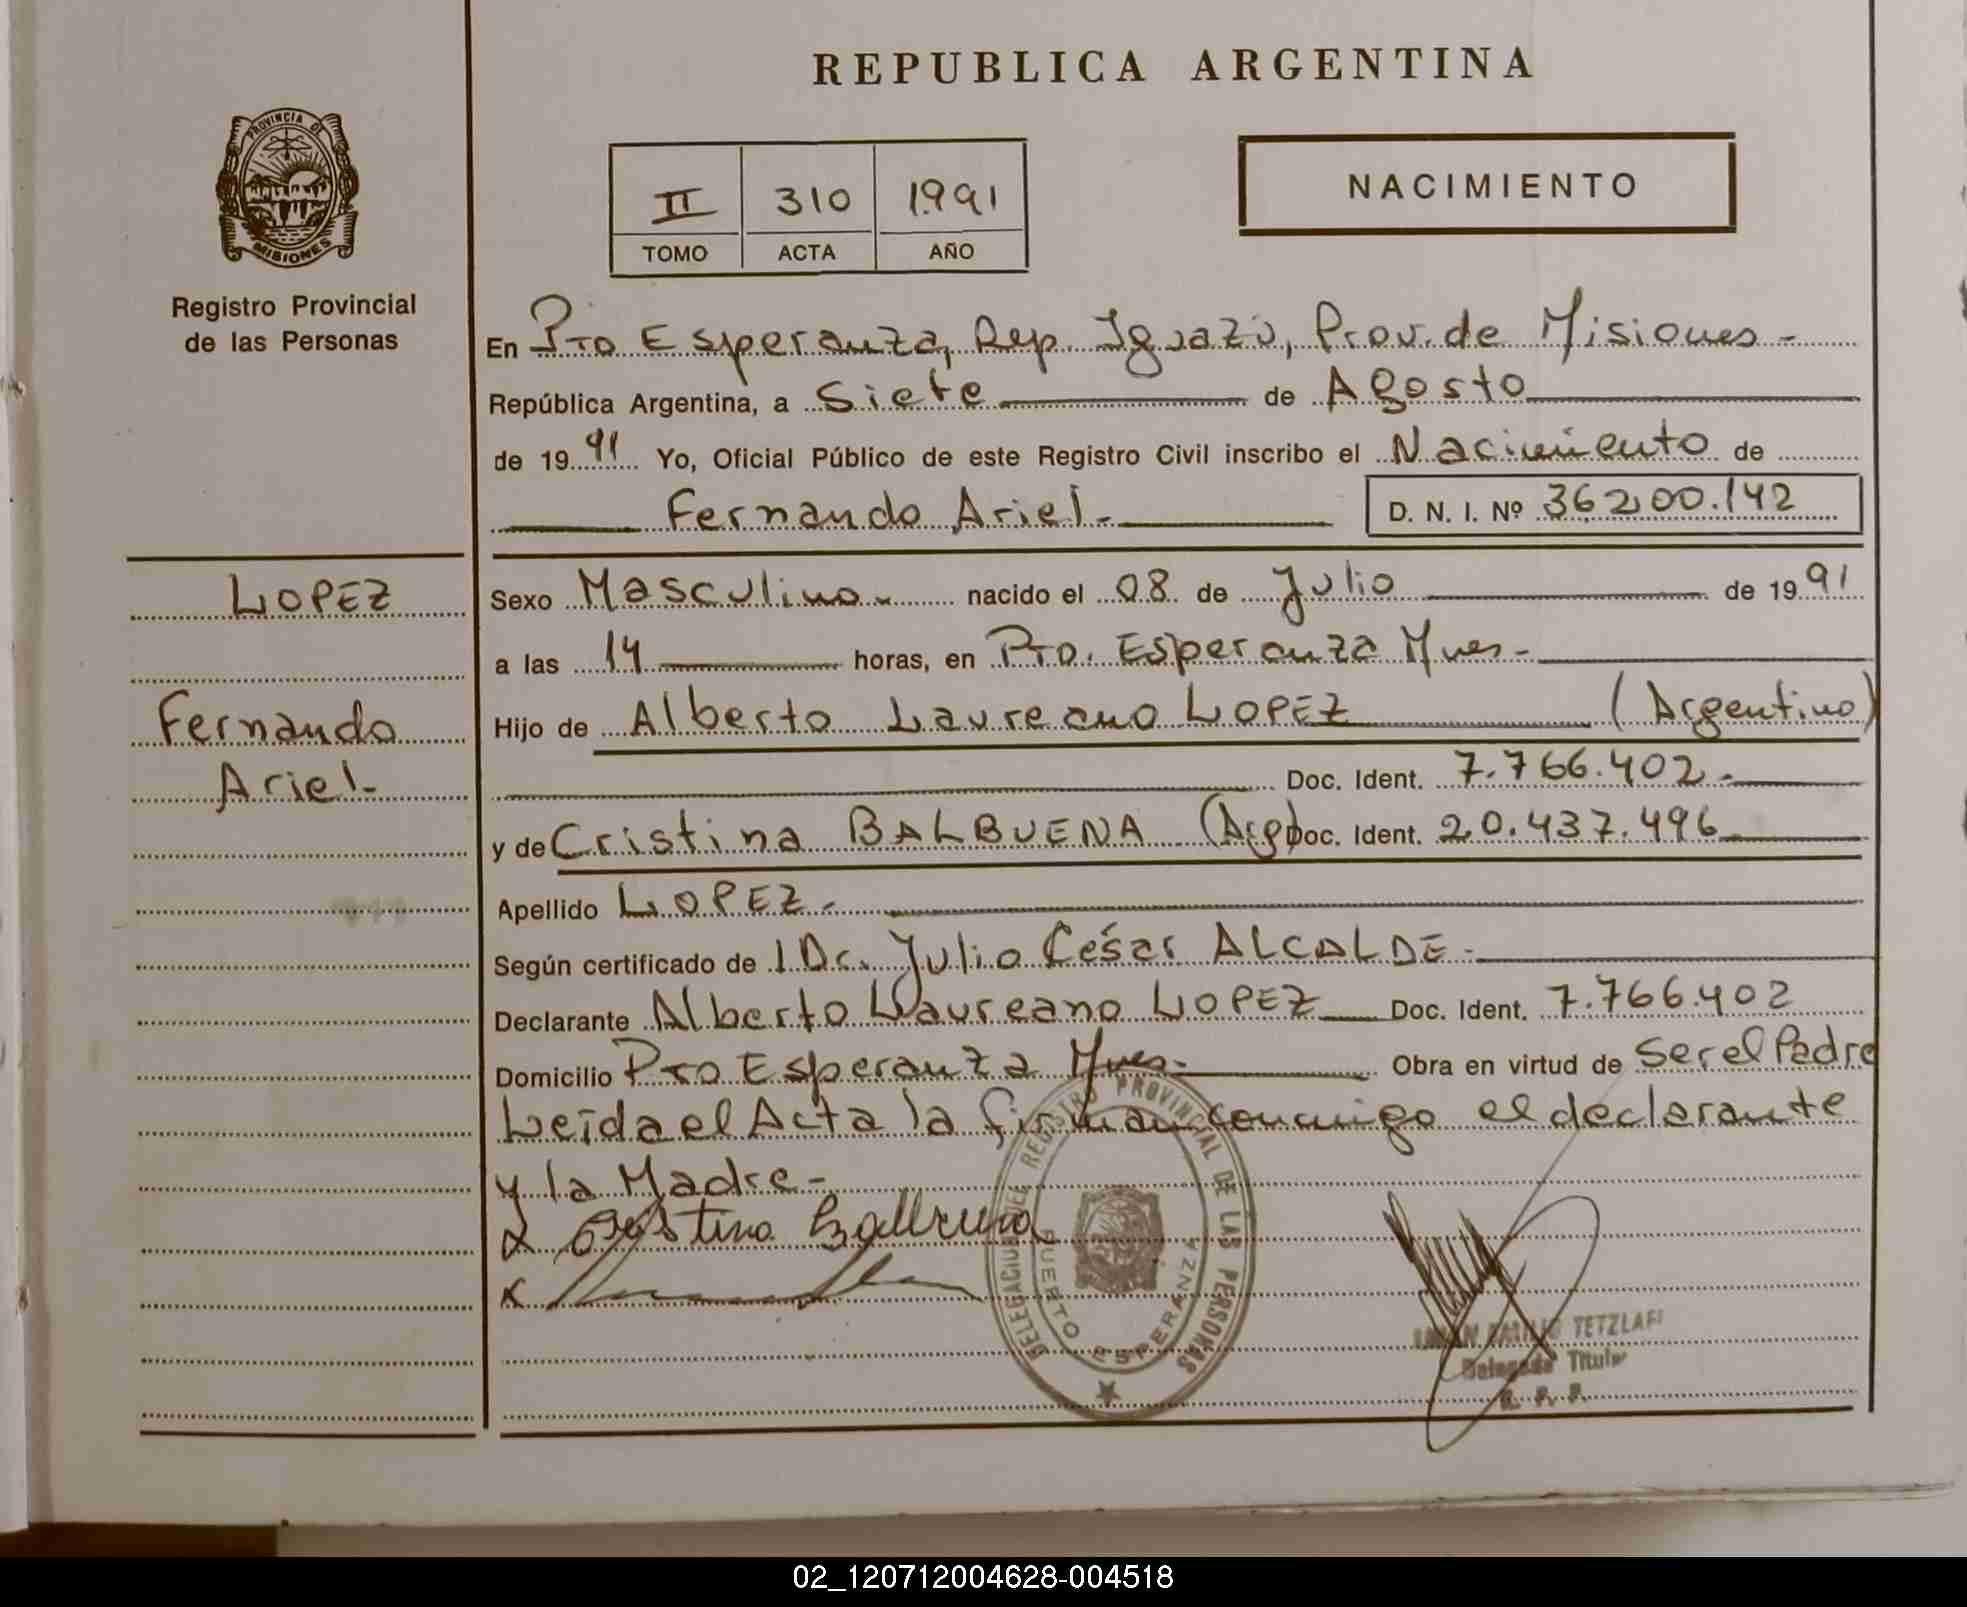 REPUBLICA ARGENTINA
PROVINCIA DE
MISIONES
Registro Provincial
de las Personas
II 310 1991
TOMO ACTA AÑO
NACIMIENTO
En Pto Esperanza, Dep. Iguazú, Prov. de Misiones -
República Argentina, a Siete de Agosto
de 1991 Yo, Oficial Público de este Registro Civil inscribo el Nacimiento de
Fernando Ariel - D. N. I. Nº 36.200.142
LOPEZ
Fernando
Ariel -
Sexo Masculino - nacido el 08 de Julio de 1991
a las 14 horas, en Pto. Esperanza Mnes -
Hijo de Alberto Laureano LOPEZ (Argentino)
Doc. Ident. 7.766.402 -
y de Cristina BALBUENA (Arg) Doc. Ident. 20.437.496
Apellido LOPEZ -
Según certificado de l Dr. Julio César ALCALDE -
Declarante Alberto Laureano LOPEZ Doc. Ident. 7.766.402
Domicilio Pto Esperanza Mnes - Obra en virtud de Ser el Padre
Leída el Acta la firman conmigo el declarante
y la Madre -
DELEGACION DEL REGISTRO PROVINCIAL DE LAS PERSONAS
PUERTO ESPERANZA
TETZLAFF
Delegado Titular
R. P. P.
02_120712004628-004518